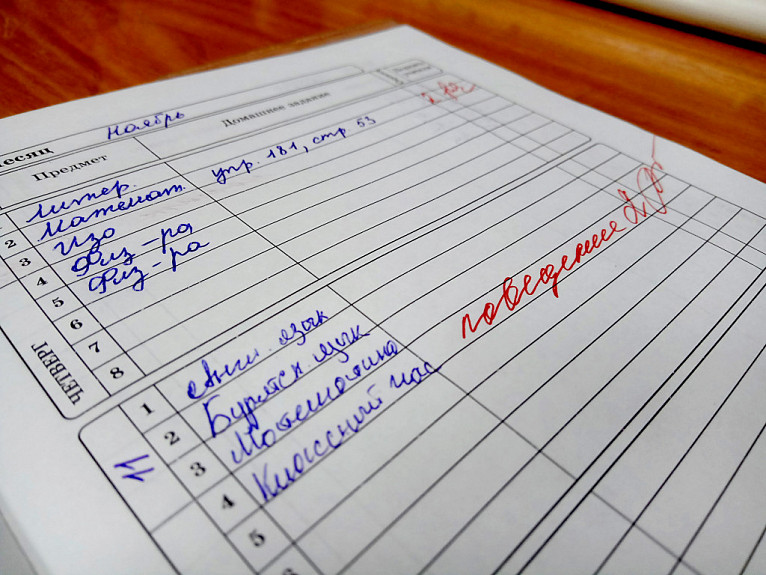 месяц ноябрь
Предмет Домашнее задание
1 литер. 2
2 Математ. упр. 181, стр 53
3 Изо
4 Физ-ра
5 Физ-ра
6
7
8
ЧЕТВЕРГ
поведение 2
1 Англ. язык
2 Бурятск. язык
3 Математика
4 Классный час
5
6
11